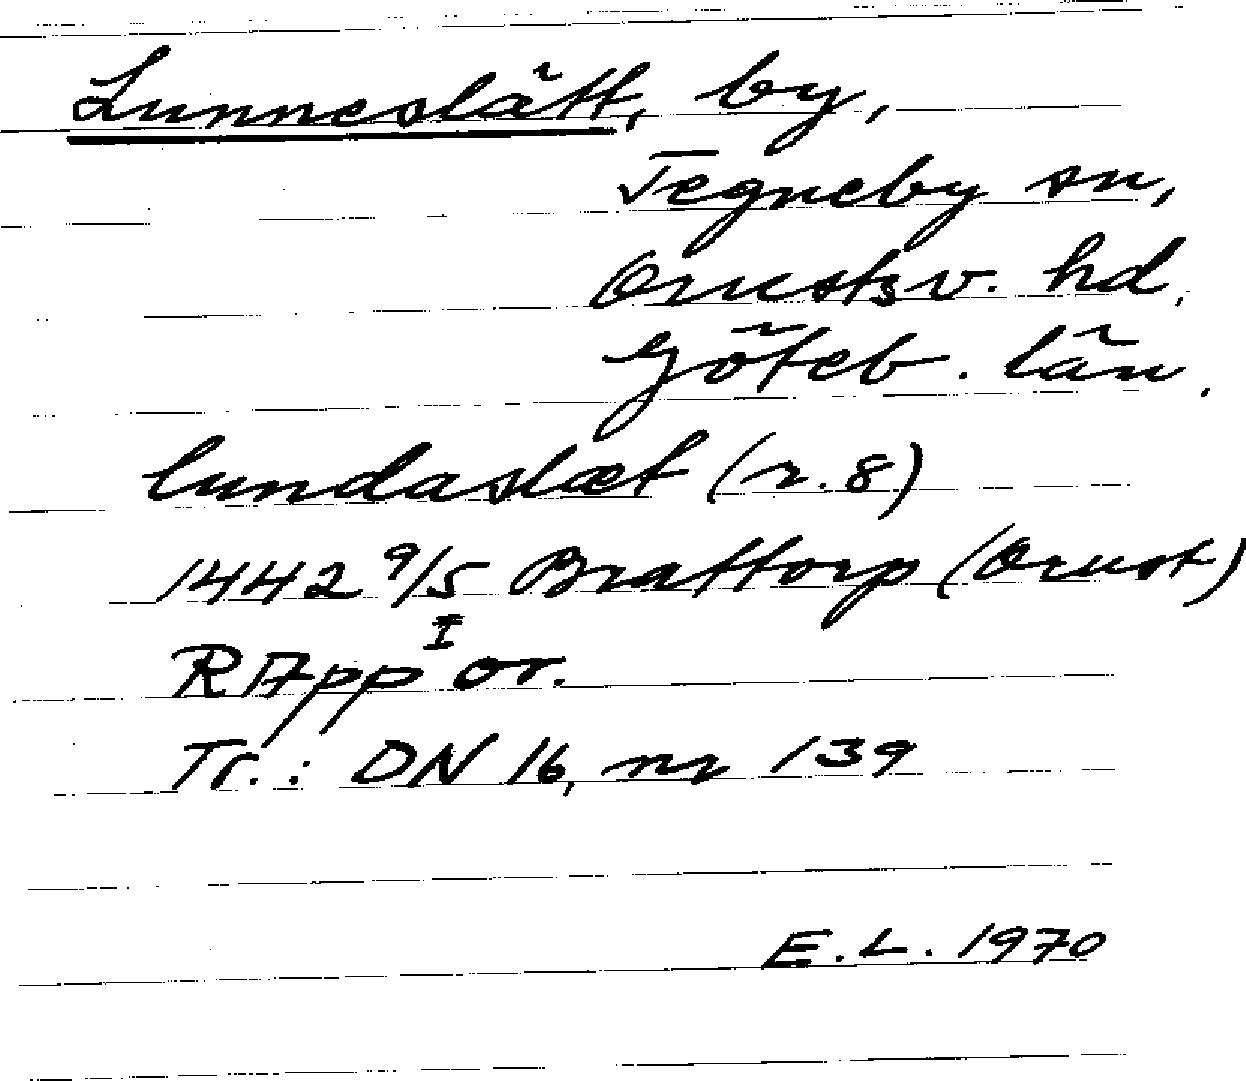 Lunneslätt, by,
Tegneby sn,
Orusts v. hd,
Göteb. län.
lundaslæt (r. 8)
1442 9/5 Brattorp (Orust)
RApp I or.
Tr.: DN 16, nr 139
E. L. 1970